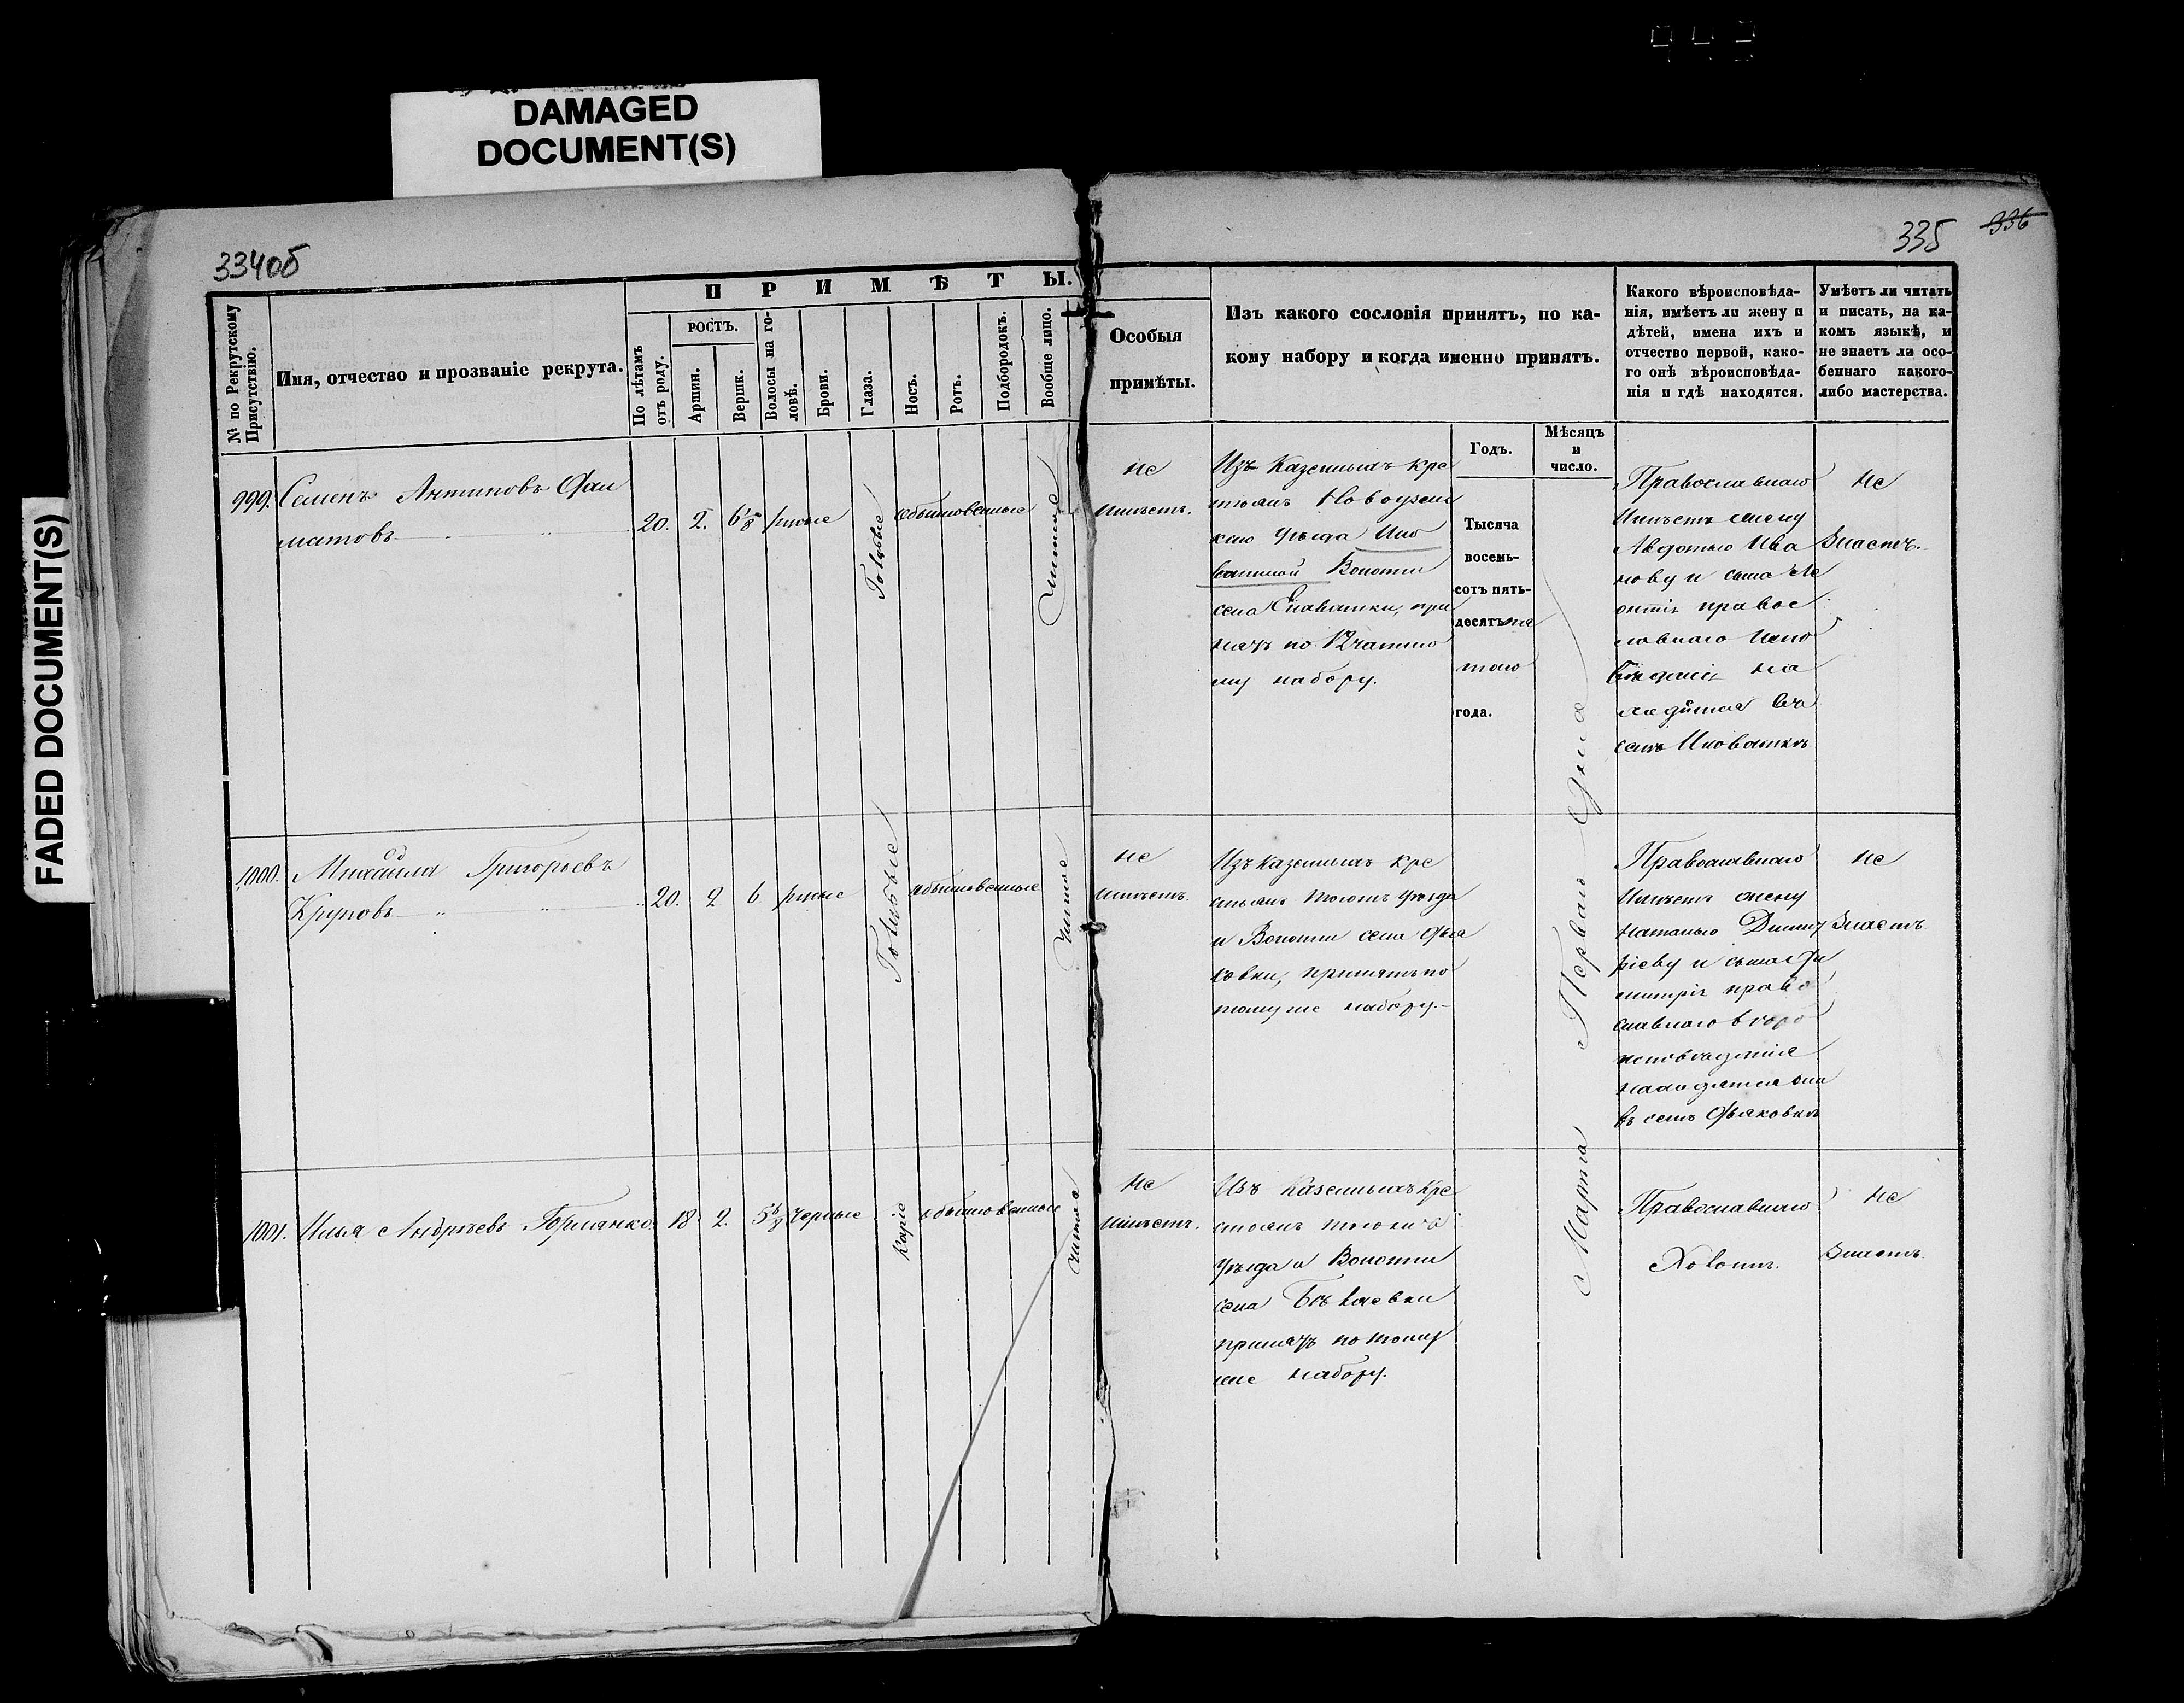 DAMAGED
DOCUMENT(S)
FADED DOCUMENT(S)
334об
335
336
№ по Рекрутскому
Присутствію.
Имя, отчество и прозваніе рекрута.
ПРИМѢТЫ.
По лѣтамъ
отъ роду.
РОСТЪ.
Аршин.
Вершк.
Волосы на го-
ловѣ.
Брови.
Глаза.
Носъ.
Ротъ.
Подбородокъ.
Вообще лицо.
Особыя
примѣты.
Изъ какого сословія принятъ, по ка-
кому набору и когда именно принятъ.
Годъ.
Мѣсяцъ
и
число.
Какого вѣроисповѣда-
нія, имѣетъ ли жену и
дѣтей, имена ихъ и
отчество первой, како-
го онѣ вѣроисповѣда-
нія и гдѣ находятся.
Умѣетъ ли читать
и писать, на ка-
комъ языкѣ, и
не знаетъ ли осо-
беннаго какого-
либо мастерства.
999. Семенъ Антиповъ
матовъ
20. 2. 6 1/8 русые
Голубые
обыкновенные
Чистое
не
имѣетъ.
Изъ Казенныхъ кре
стьянъ Новоузенс
каго Уѣзда Ило
ватской Волости
села при
нятъ по 12 частно
му набору.
Тысяча
восемь-
сотъ пять-
десятъ пя
таго
года.
Марта Перваго Дня
Православнаго
Имѣетъ жену
Авдотью Ива
нову и сына Ле
онтія правос
лавнаго испо
вѣданія на
ходятся въ
селѣ Иловаткѣ
Не
Знаетъ.
1000. Михайла Григорьевъ
Круповъ
20. 2 6 русые
Голубые
обыкновенные
Чистое
не
имѣетъ.
Изъ казенныхъ кре
стьянъ того жъ уѣзда
и Волости села Дья
ковки, принятъ по
тому же набору.
Православнаго
Имѣетъ жену
Наталью Дмит
ріеву и сына Ди
митрія право
славнаго вѣро
исповѣданія
находятся они
въ селѣ Дьяковкѣ
Не
Знаетъ
1001. Илья Андреевъ Горянко.
18 2. 5 5/8 Черные
Каріе
обыкновенные
чистое
Не
имѣетъ.
Изъ казенныхъ Кре
стьянъ того жъ
уѣзда и Волости
села
принятъ по тому
же набору.
Православнаго
Холостъ.
Не
Знаетъ.